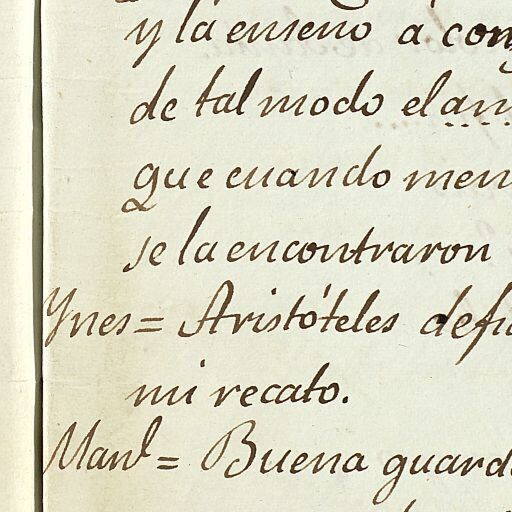 y la enseño á con
de tal modo el am
que cuando men
se la encontraron
Ynes = Aristóteles defi
mi recato.
Man.l = Buena guard